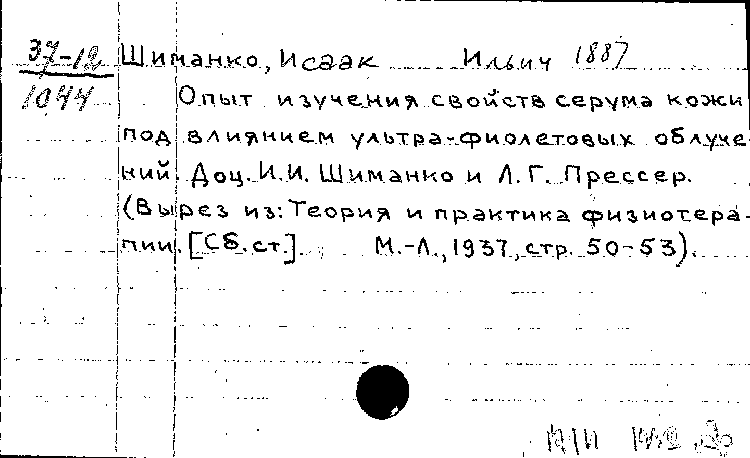 37-12 Шиманко, Исаак Ильич 1887
1044
Опыт изучения свойств серума кожи
под влиянием ультра-фиолетовых облуче-
ний. Доц. И.И. Шиманко и Л.Г. Прессер.
(Вырез из: Теория и практика физиотера-
пии. [Сб. ст.] М.-Л., 1937, стр. 50-53).